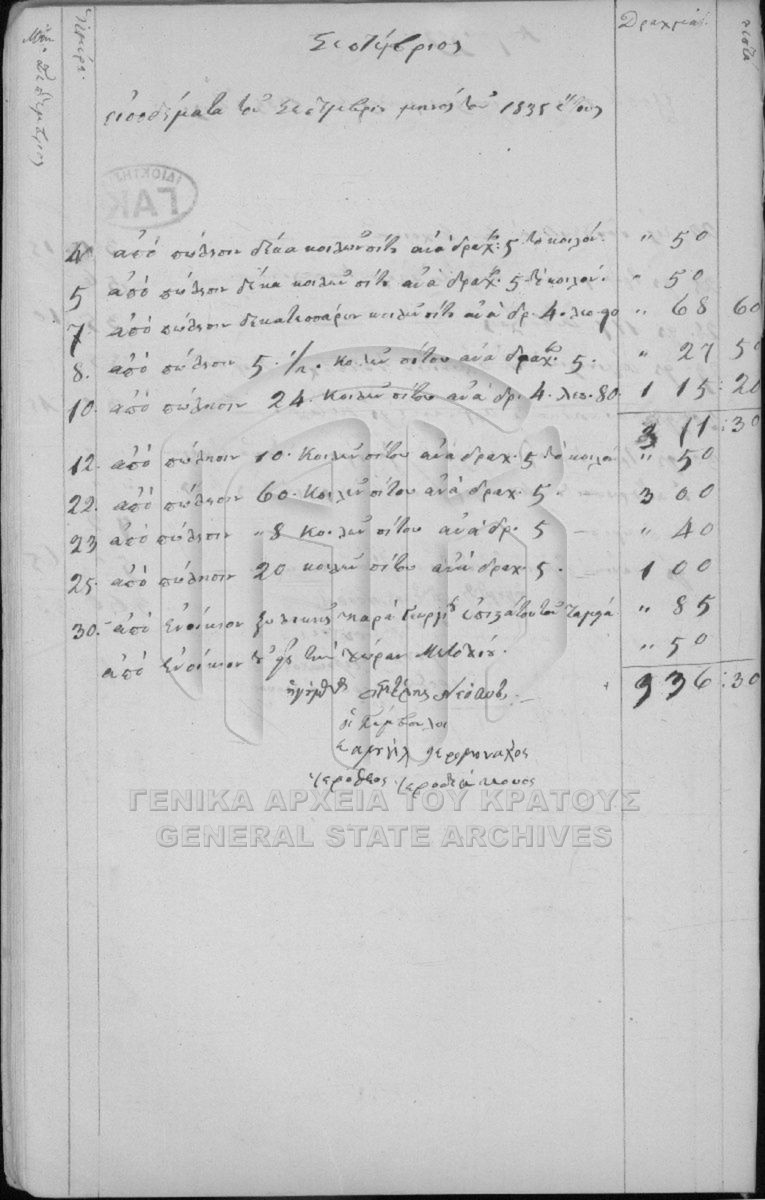 Μὴν Σεπτέμβριος
Ἡμέραι
Δραχμαί
λεπτά
Σεπτέμβριος
εἰσοδήματα τοῦ Σεπτεμβρίου μηνός τοῦ 1835 ἔτους
ΙΔΙΟΚΤΗΣ
ΓΑΚ
4 ἀπό πώλησιν δέκα κοιλῶν σίτου ἀνά δραχ: 5 τό κοιλόν. " 50
5 ἀπό πώλησιν δέκα κοιλῶν σίτου ἀνά δραχ: 5 τό κοιλόν. " 50
7. ἀπό πώλησιν δεκατεσσάρων κοιλῶν σίτου ἀνά δρ. 4. λεπ. 90 " 68 60
8. ἀπό πώλησιν 5. 1/2. κοιλῶν σίτου ἀνά δραχ. 5. " 27 50
10. ἀπό πώλησιν 24. κοιλῶν σίτου ἀνά δρ. 4. λεπ. 80. 115:20
311:30
12. ἀπό πώλησιν 10. κοιλῶν σίτου ἀνά δραχ. 5 τό κοιλόν " 50
22. ἀπό πώλησιν 60. κοιλῶν σίτου ἀνά δραχ. 5. 300
23 ἀπό πώλησιν " 8 κοιλῶν σίτου ἀνά δρ. 5 — " 40
25. ἀπό πώλησιν 20 κοιλῶν σίτου ἀνά δραχ. 5. 100
30. ἀπό ἐνοίκιον παρά Γεωργίου τοῦ " 85
ἀπό ἐνοίκιον τοῦ εἰς τήν χώραν Μετοχίου. " 50
936:30
ἡγούμενος Νεόφυτος
οἱ σύμβουλοι
σαμουήλ ἱερομοναχος
ἱερόθεος ἱεροδιάκονος
ΓΕΝΙΚΑ ΑΡΧΕΙΑ ΤΟΥ ΚΡΑΤΟΥΣ
GENERAL STATE ARCHIVES